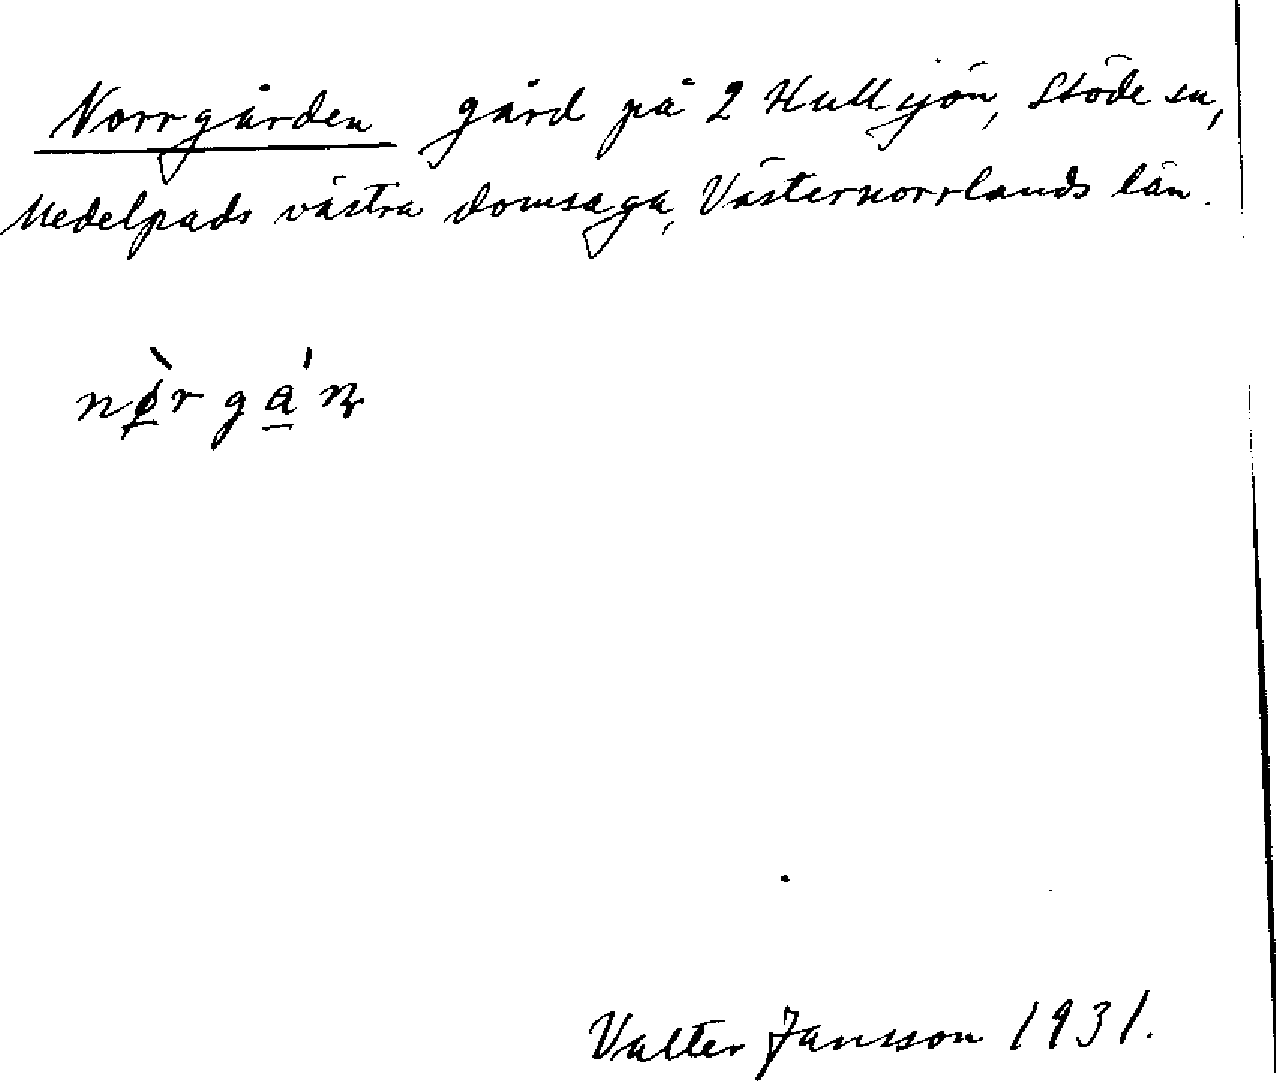 Norrgården gård på 2 Hullsjön, Stöde sn,
Medelpads västra domsaga, Västernorrlands län.
Valter Jansson 1931.